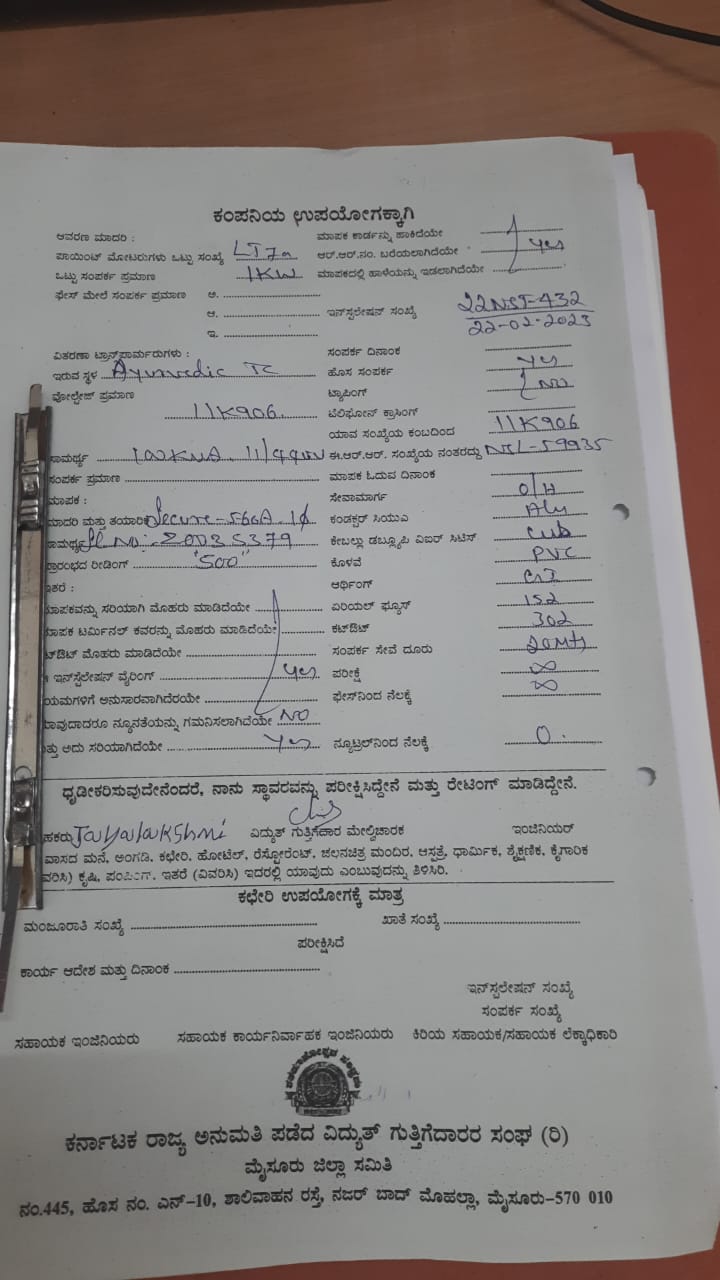 ಕಂಪನಿಯ ಉಪಯೋಗಕ್ಕಾಗಿ
ಆವರಣ ಮಾದರಿ : ಮಾಪಕ ಕಾರ್ಡನ್ನು ಹಾಕಿದೆಯೇ
ಪಾಯಿಂಟ್ ಮೋಟರುಗಳು ಒಟ್ಟು ಸಂಖ್ಯೆ LT7a ಆರ್.ಆರ್.ನಂ. ಬರೆಯಲಾಗಿದೆಯೇ Yes
ಒಟ್ಟು ಸಂಪರ್ಕ ಪ್ರಮಾಣ 1KW ಮಾಪಕದಲ್ಲಿ ಹಾಳೆಯನ್ನು ಇಡಲಾಗಿದೆಯೇ
ಫೇಸ್ ಮೇಲೆ ಸಂಪರ್ಕ ಪ್ರಮಾಣ ಅ.
ಆ. ಇನ್‌ಸ್ಟಲೇಷನ್ ಸಂಖ್ಯೆ 22NST-432
ಇ. 22-02-2023
ವಿತರಣಾ ಟ್ರಾನ್ಸ್‌ಫಾರ್ಮರುಗಳು : ಸಂಪರ್ಕ ದಿನಾಂಕ
ಇರುವ ಸ್ಥಳ Ayurvedic TC ಹೊಸ ಸಂಪರ್ಕ Yes
ವೋಲ್ಟೇಜ್ ಪ್ರಮಾಣ ಟ್ಯಾಪಿಂಗ್ NO
11K906 ಟೆಲಿಫೋನ್ ಕ್ರಾಸಿಂಗ್
ಯಾವ ಸಂಖ್ಯೆಯ ಕಂಬದಿಂದ 11K906
ಸಾಮರ್ಥ್ಯ ಈ.ಆರ್.ಆರ್. ಸಂಖ್ಯೆಯ ನಂತರದ್ದು NCL-59935
ಸಂಪರ್ಕ ಪ್ರಮಾಣ ಮಾಪಕ ಓದುವ ದಿನಾಂಕ
ಮಾಪಕ : ಸೇವಾಮಾರ್ಗ O/H
ಮಾದರಿ ಮತ್ತು ತಯಾರಿಕೆ Secure-5-60A 1ϕ ಕಂಡಕ್ಟರ್ ಸಿಯುಎ Aly
ಸಾಮರ್ಥ್ಯ Sl No: 20035379 ಕೇಬಲ್ಲು ಡಬ್ಲ್ಯೂಪಿ ವಿಐರ್ ಸಿಟಿಸ್ Cub
ಪ್ರಾರಂಭದ ರೀಡಿಂಗ್ "500" ಕೊಳವೆ PVC
ಇತರೆ : ಆರ್ಥಿಂಗ್ GI
ಮಾಪಕವನ್ನು ಸರಿಯಾಗಿ ಮೊಹರು ಮಾಡಿದೆಯೇ ಏರಿಯಲ್ ಫ್ಯೂಸ್ 152
ಮಾಪಕ ಟರ್ಮಿನಲ್ ಕವರನ್ನು ಮೊಹರು ಮಾಡಿದೆಯೇ ಕಟ್‌ಔಟ್ 302
ಕಟ್‌ಔಟ್ ಮೊಹರು ಮಾಡಿದೆಯೇ ಸಂಪರ್ಕ ಸೇವೆ ದೂರು 20Mts
ಇನ್‌ಸ್ಟಲೇಷನ್ ವೈರಿಂಗ್ Yes ಪರೀಕ್ಷೆ ∞
ನಿಯಮಗಳಿಗೆ ಅನುಸಾರವಾಗಿದೆರಯೇ ಫೇಸ್‌ನಿಂದ ನೆಲಕ್ಕೆ ∞
ಯಾವುದಾದರೂ ನ್ಯೂನತೆಯನ್ನು ಗಮನಿಸಲಾಗಿದೆಯೇ NO
ಮತ್ತು ಅದು ಸರಿಯಾಗಿದೆಯೇ Yes ನ್ಯೂಟ್ರಲ್‌ನಿಂದ ನೆಲಕ್ಕೆ 0.
ಧೃಡೀಕರಿಸುವುದೇನೆಂದರೆ, ನಾನು ಸ್ಥಾವರವನ್ನು ಪರೀಕ್ಷಿಸಿದ್ದೇನೆ ಮತ್ತು ರೇಟಿಂಗ್ ಮಾಡಿದ್ದೇನೆ.
ಹಕರು Jayalakshmi ವಿದ್ಯುತ್ ಗುತ್ತಿಗೆದಾರ ಮೇಲ್ವಿಚಾರಕ ಇಂಜಿನಿಯರ್
ವಾಸದ ಮನೆ, ಅಂಗಡಿ, ಕಛೇರಿ, ಹೋಟೆಲ್, ರೆಸ್ಟೋರೆಂಟ್, ಚಲನಚಿತ್ರ ಮಂದಿರ, ಆಸ್ಪತ್ರೆ, ಧಾರ್ಮಿಕ, ಶೈಕ್ಷಣಿಕ, ಕೈಗಾರಿಕ
ವರಿಸಿ) ಕೃಷಿ, ಪಂಪಿಂಗ್, ಇತರೆ (ವಿವರಿಸಿ) ಇದರಲ್ಲಿ ಯಾವುದು ಎಂಬುವುದನ್ನು ತಿಳಿಸಿರಿ.
ಕಛೇರಿ ಉಪಯೋಗಕ್ಕೆ ಮಾತ್ರ
ಮಂಜೂರಾತಿ ಸಂಖ್ಯೆ ಖಾತೆ ಸಂಖ್ಯೆ
ಪರೀಕ್ಷಿಸಿದೆ
ಕಾರ್ಯ ಆದೇಶ ಮತ್ತು ದಿನಾಂಕ
ಇನ್‌ಸ್ಟಲೇಷನ್ ಸಂಖ್ಯೆ
ಸಂಪರ್ಕ ಸಂಖ್ಯೆ
ಸಹಾಯಕ ಇಂಜಿನಿಯರು ಸಹಾಯಕ ಕಾರ್ಯನಿರ್ವಾಹಕ ಇಂಜಿನಿಯರು ಕಿರಿಯ ಸಹಾಯಕ/ಸಹಾಯಕ ಲೆಕ್ಕಾಧಿಕಾರಿ
ಕರ್ನಾಟಕ ರಾಜ್ಯ ಅನುಮತಿ ಪಡೆದ ವಿದ್ಯುತ್ ಗುತ್ತಿಗೆದಾರರ ಸಂಘ (ರಿ)
ಮೈಸೂರು ಜಿಲ್ಲಾ ಸಮಿತಿ
ನಂ.445, ಹೊಸ ನಂ. ಎನ್-10, ಶಾಲಿವಾಹನ ರಸ್ತೆ, ನಜರ್ ಬಾದ್ ಮೊಹಲ್ಲಾ, ಮೈಸೂರು-570 010